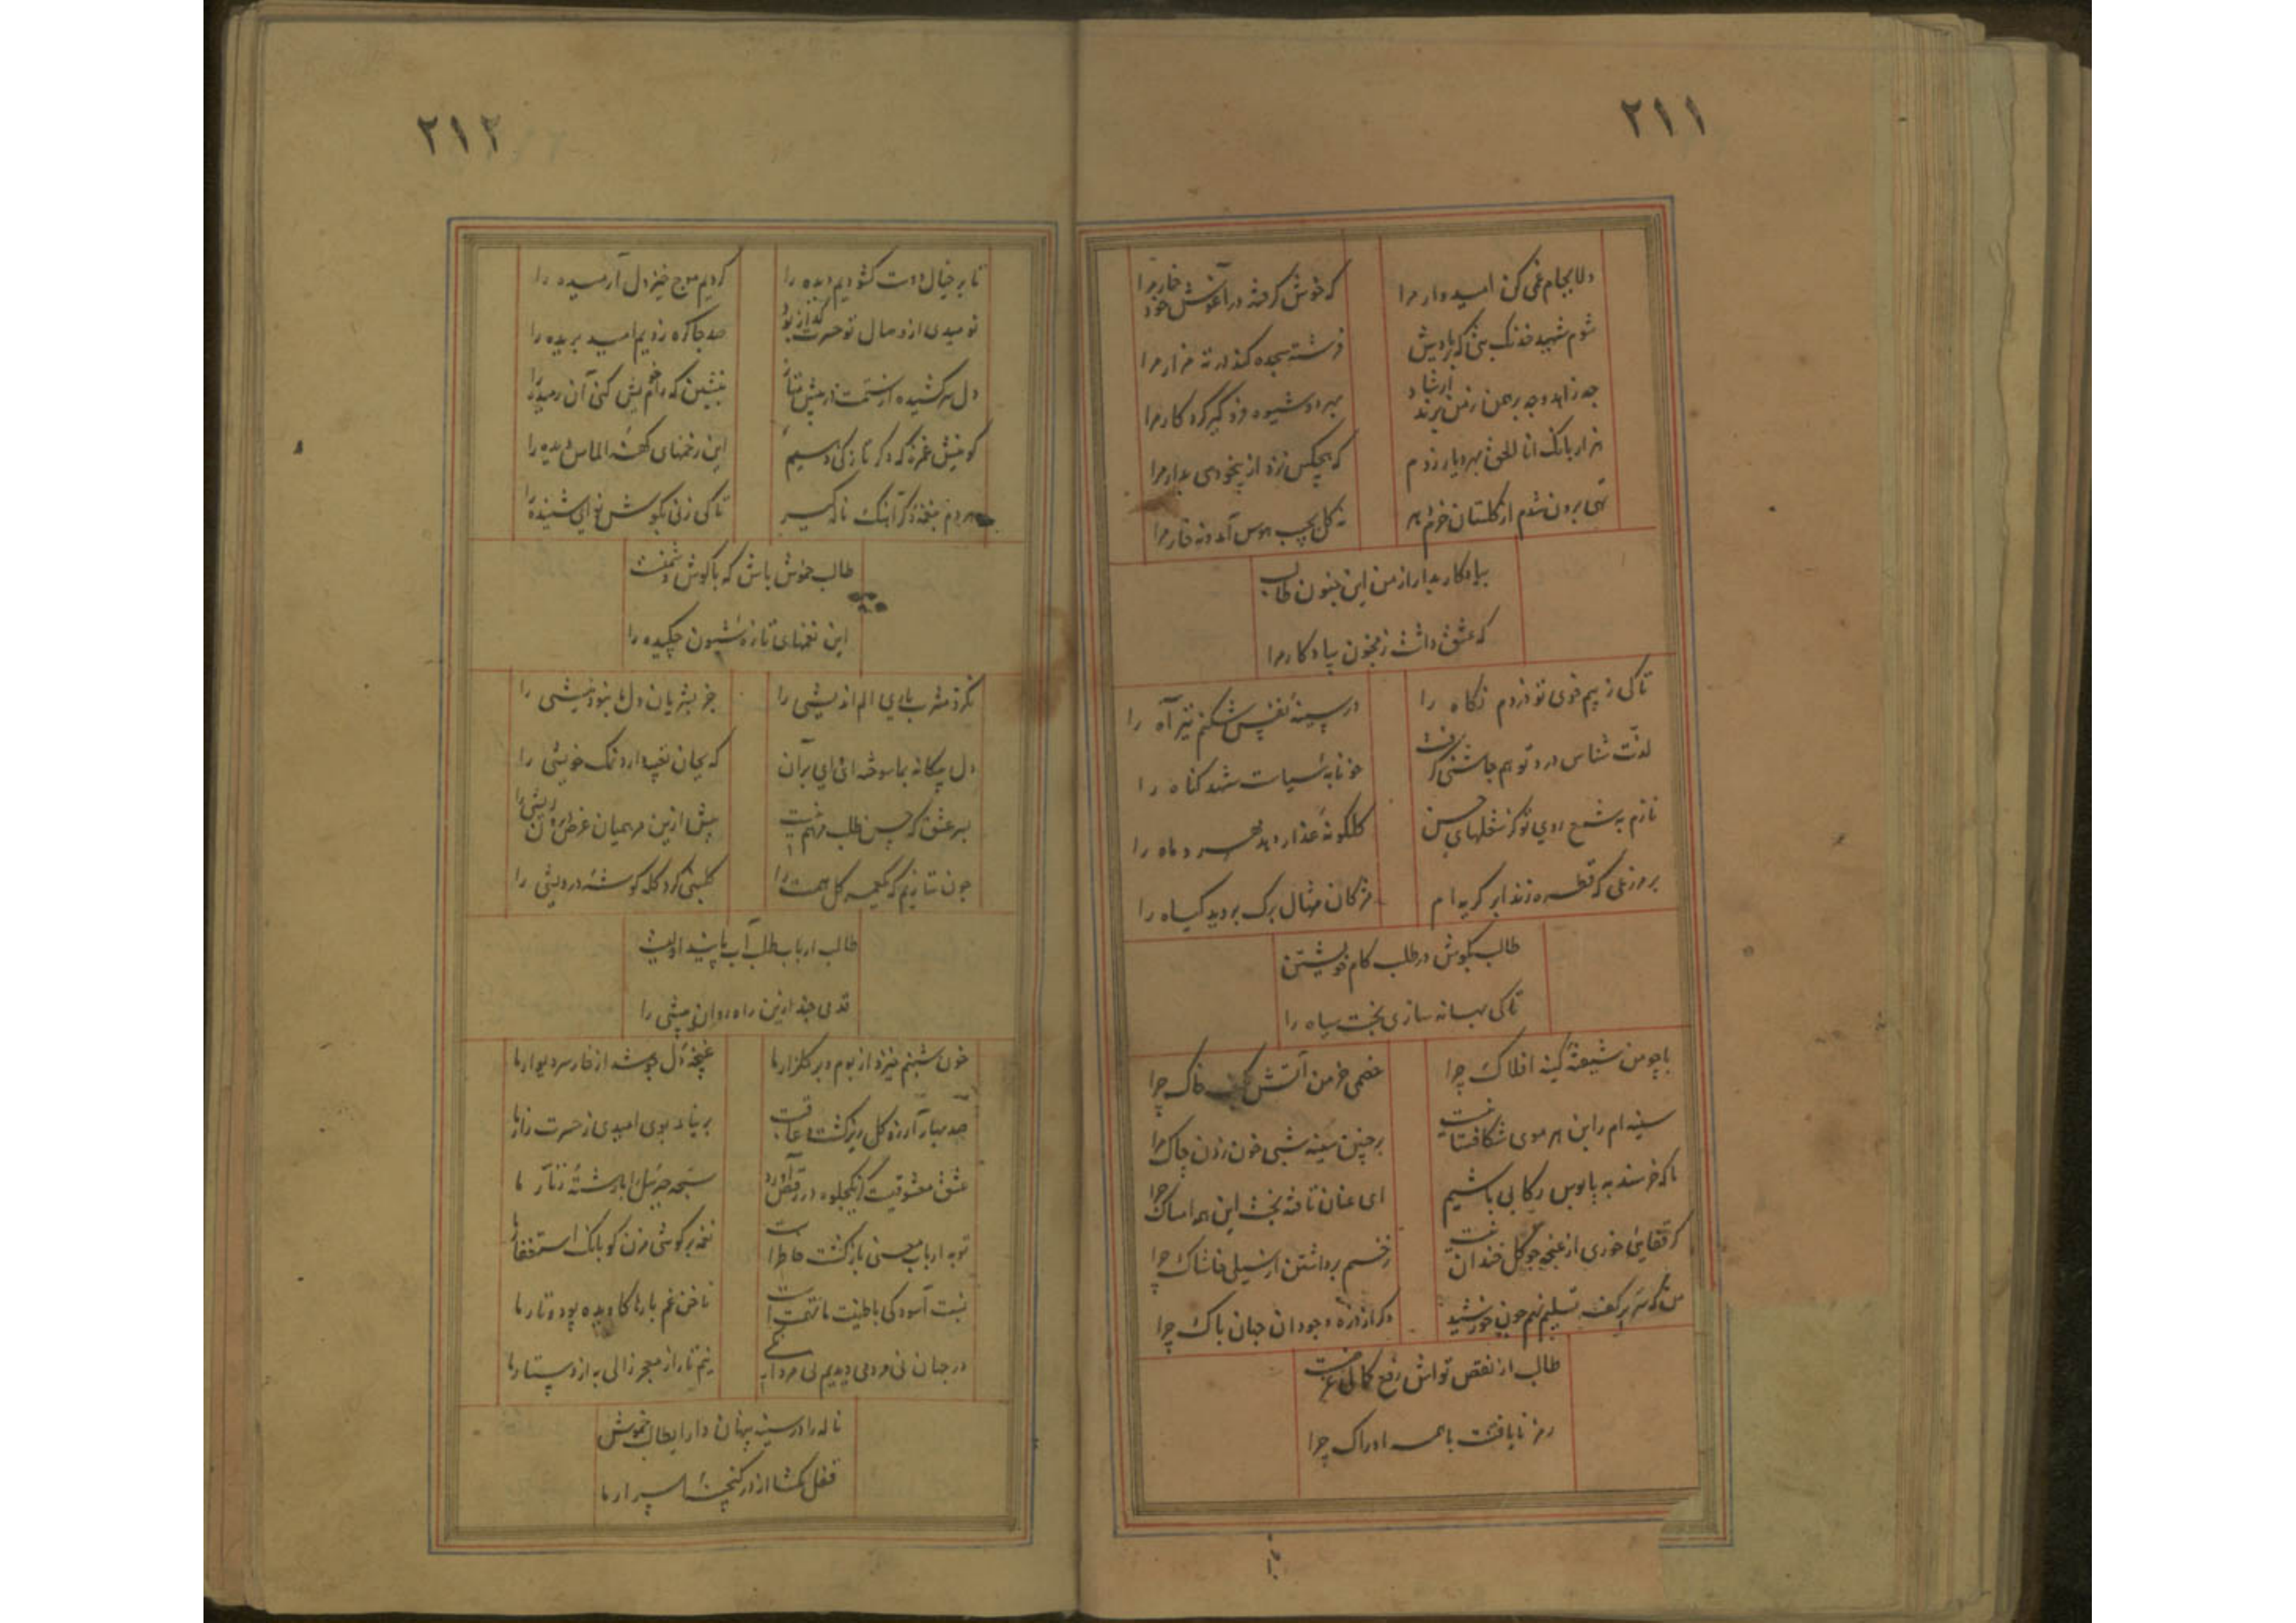 ٢١١
دلا بجام غمی کن امیدوار مرا
که خوش گرفته در آغوش خود خار مرا
شوم شهید خدنک بتی که بر یادش
فرشته سجده کند در ته مزار مرا
چه زاهد و چه برهمن ز من برند ارشاد
بهر دو شیوه فرو گیر کرد کار مرا
هزار بانک انا الحق بهر دیار زدم
که هیچکس نزد از بیخودی بدار مرا
تهی برون شدم از گلستان خرم دهر
نه گل بجیب هوس آمد و نه خار مرا
بیادگار بدار از من این جنون طالب
که عشق داشت ز مجنون بیادگار مرا
تا کی ز بیم خوی تو دزدم نگاه را
در سینهٔ نفس شکنم تیر آه را
لذت شناس درد تو هم چاشنی گرفت
خونابه سیاست شهد گناه را
نازم به شمع روی تو کز شعلهای حسن
گلگونهٔ عذار دهد مهر و ماه را
بر هر زمی که قطره زند ابر گریه ام
مژکان مثال برگ بروید گیاه را
طالب بکوش در طلب کام خویشتن
تا کی بهانه سازی بخت سیاه را
با چو من شیفتهٔ کینه افلاک چرا
خصمی خرمن آتش بکف خاک چرا
سینه ام را بن هر موی شکافتست
بر چنین سینه شبی خون زدن چاک چرا
ما که خرسند به پابوس رکابی باشیم
ای عنان تافته بخت این همه امساک چرا
گر قفایی خوری از غنچه چو گل خندان
زخم برداشتن از سیلی خاشاک چرا
من که سر بر کف تسلیم نهم چون خورشید
دگر آزردن وجود آن جان پاک چرا
طالب از نقص تو اش رفع کمالی غرضست
رمز نایافت با همه ادراک چرا
٢١٢
تا بر خیال دوست گشودیم دیده را
کردیم موج خیز دل آرمیده را
نومیدی از وصال تو حسرت گداز بود
صد جا گره زدیم امید بریده را
دل سرکشیده از ستمت ز پیش متاز
بنشین که رام خویش کنی آن رمیده را
کو نیش غمزهٔ که دگر تازگی دهیم
این زخمهای کهنه الماس دیده را
همدم بنغمهٔ دگر آهنک ناله گیر
تا کی زنی بگوش نوای شنیده را
طالب خموش باش که با گوش دشمنست
این نغمهای تازه شیون چکیده را
نگزد مشرب یاری الم اندیشی را
جز بشریان دل ما بنود نیشی را
دل بیگانه بما سوخته انی ای بر آن
که بجان تعبیه دارد نمک خویشی را
بسر عشق که حسن طلب مرهم نیست
پیش ازین مرهمیان عرض مده ریشی را
چون ننازیم که نکیمه گل همت را
گلبنی کرد کله گوشه درویشی را
طالب ارباب طلب آب باشید اولیت
قدمی چند ازین راه روان پیشی را
خون شبنم خیزد از بوم و بر گلزار ما
غنچهٔ دل جوشد از خار سر دیوار ما
صد بهار آرزو گل ریز گشت و عاقبت
بر نیامد بوی امیدی ز حسرت زار ما
عشق معشوقیست کز یکجلوه در رقص آورد
سبحه جبریل را با رشتهٔ زنار ما
توبه ارباب معنی بازگشت خاطر است
نغمه بر گوشی مزن کو بانک استغفار ما
نسبت آسودگی با طینت ما تهمت است
ناخن غم بارها کاویده پود و تار ما
در جهان نی مردمی دیدیم نی مردانکی
نیم تار از معجر زالی به از دستار ما
ناله را در سینه پنهان دار ای طالب خموش
قفل مکشا از در گنجینهٔ اسرار ما